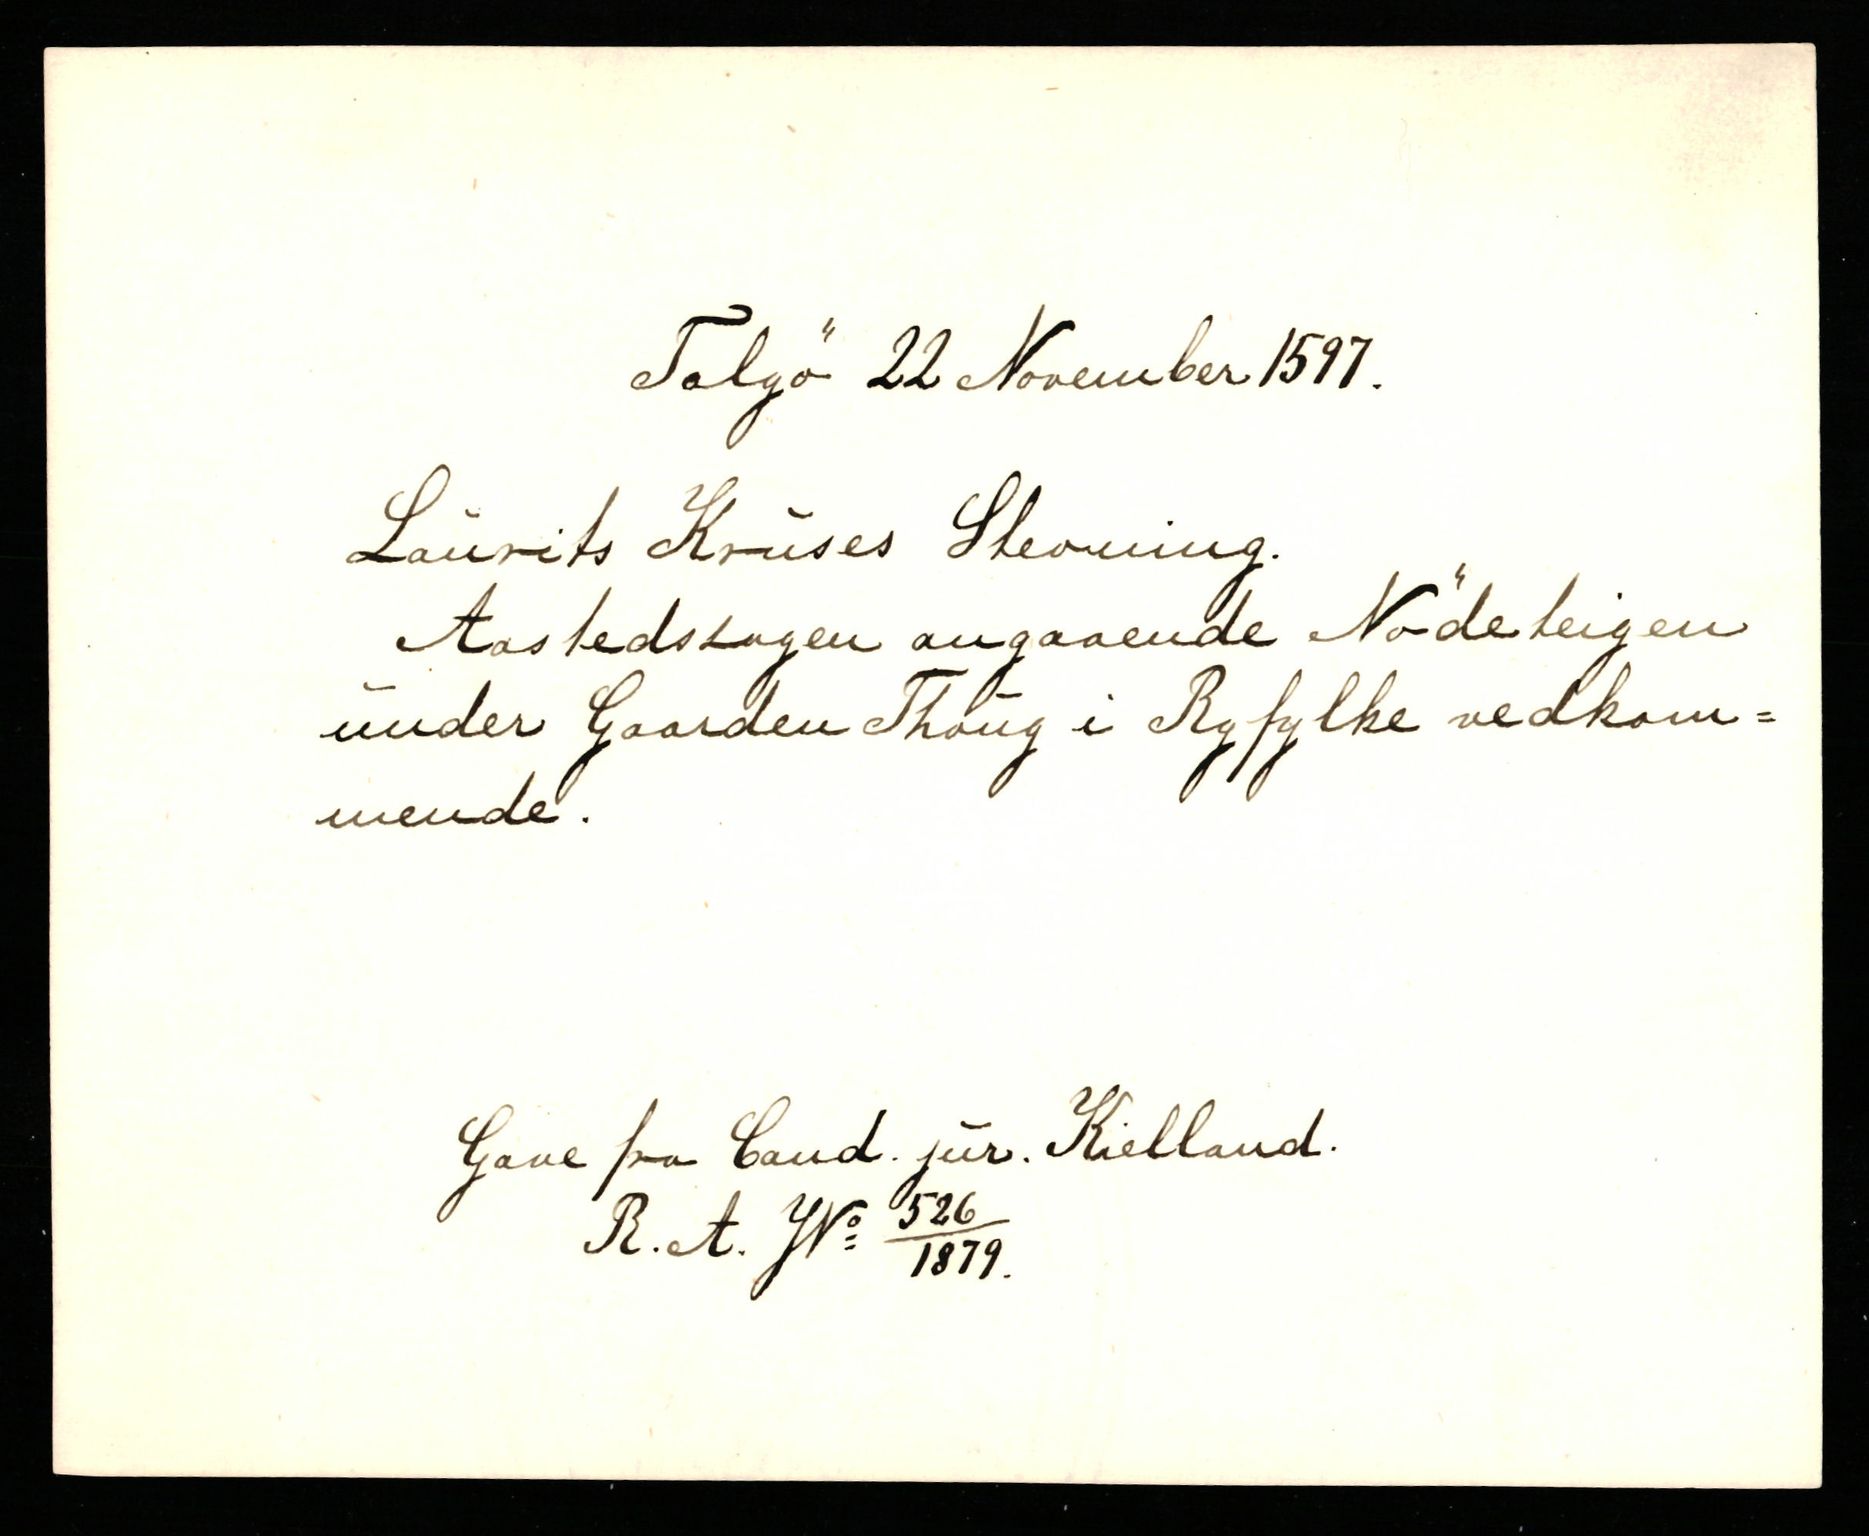 Talgö 22 November 1597.
Laurits Kruses Stevning.
Aastedssagen angaaende Nödeteigen
under Gaarden Thoug i Ryfylke vedkom=
mende.
Gave fra Cand. jur. Kielland.
R. A. J№ 526
1879.